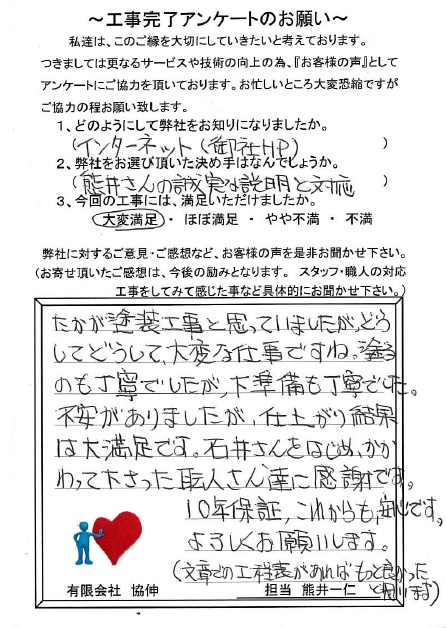 ～工事完了アンケートのお願い～
私達は、このご縁を大切にしていきたいと考えております。
つきましては更なるサービスや技術の向上の為、『お客様の声』として
アンケートにご協力を頂いております。お忙しいところ大変恐縮ですが
ご協力の程お願い致します。
1、どのようにして弊社をお知りになりましたか。
(インターネット(御社HP) )
2、弊社をお選び頂いた決め手はなんでしょうか。
(熊井さんの誠実な説明と対応 )
3、今回の工事には、満足いただけましたか。
大変満足 ・ ほぼ満足 ・ やや不満 ・ 不満
弊社に対するご意見・ご感想など、お客様の声を是非お聞かせ下さい。
(お寄せ頂いたご感想は、今後の励みとなります。 スタッフ・職人の対応
工事をしてみて感じた事など具体的にお聞かせ下さい。)
たかが塗装工事と思っていましたが、どう
してどうして、大変な仕事ですね。塗る
のも丁寧でしたが、下準備も丁寧でした。
不安がありましたが、仕上がり結果
は大満足です。石井さんをはじめ、かか
わって下さった職人さん達に感謝です。
10年保証、これからも安心です。
よろしくお願いします。
(文章での工程表があればもっと良かった
と思います)
有限会社 協伸
担当 熊井一仁